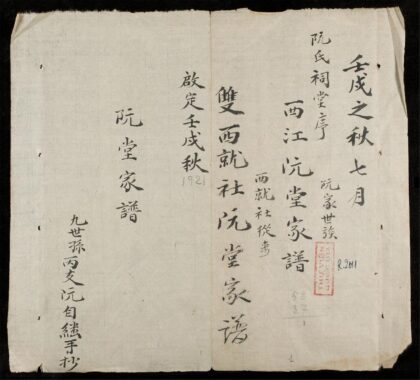 壬戌之秋七月
阮氏祠堂序
阮家世強
西江沅堂家譜
西就社從来
雙西就社沅堂家譜
啟定壬戌秋
1921
阮堂家譜
九世孫丙支沅自继手抄
R.2111